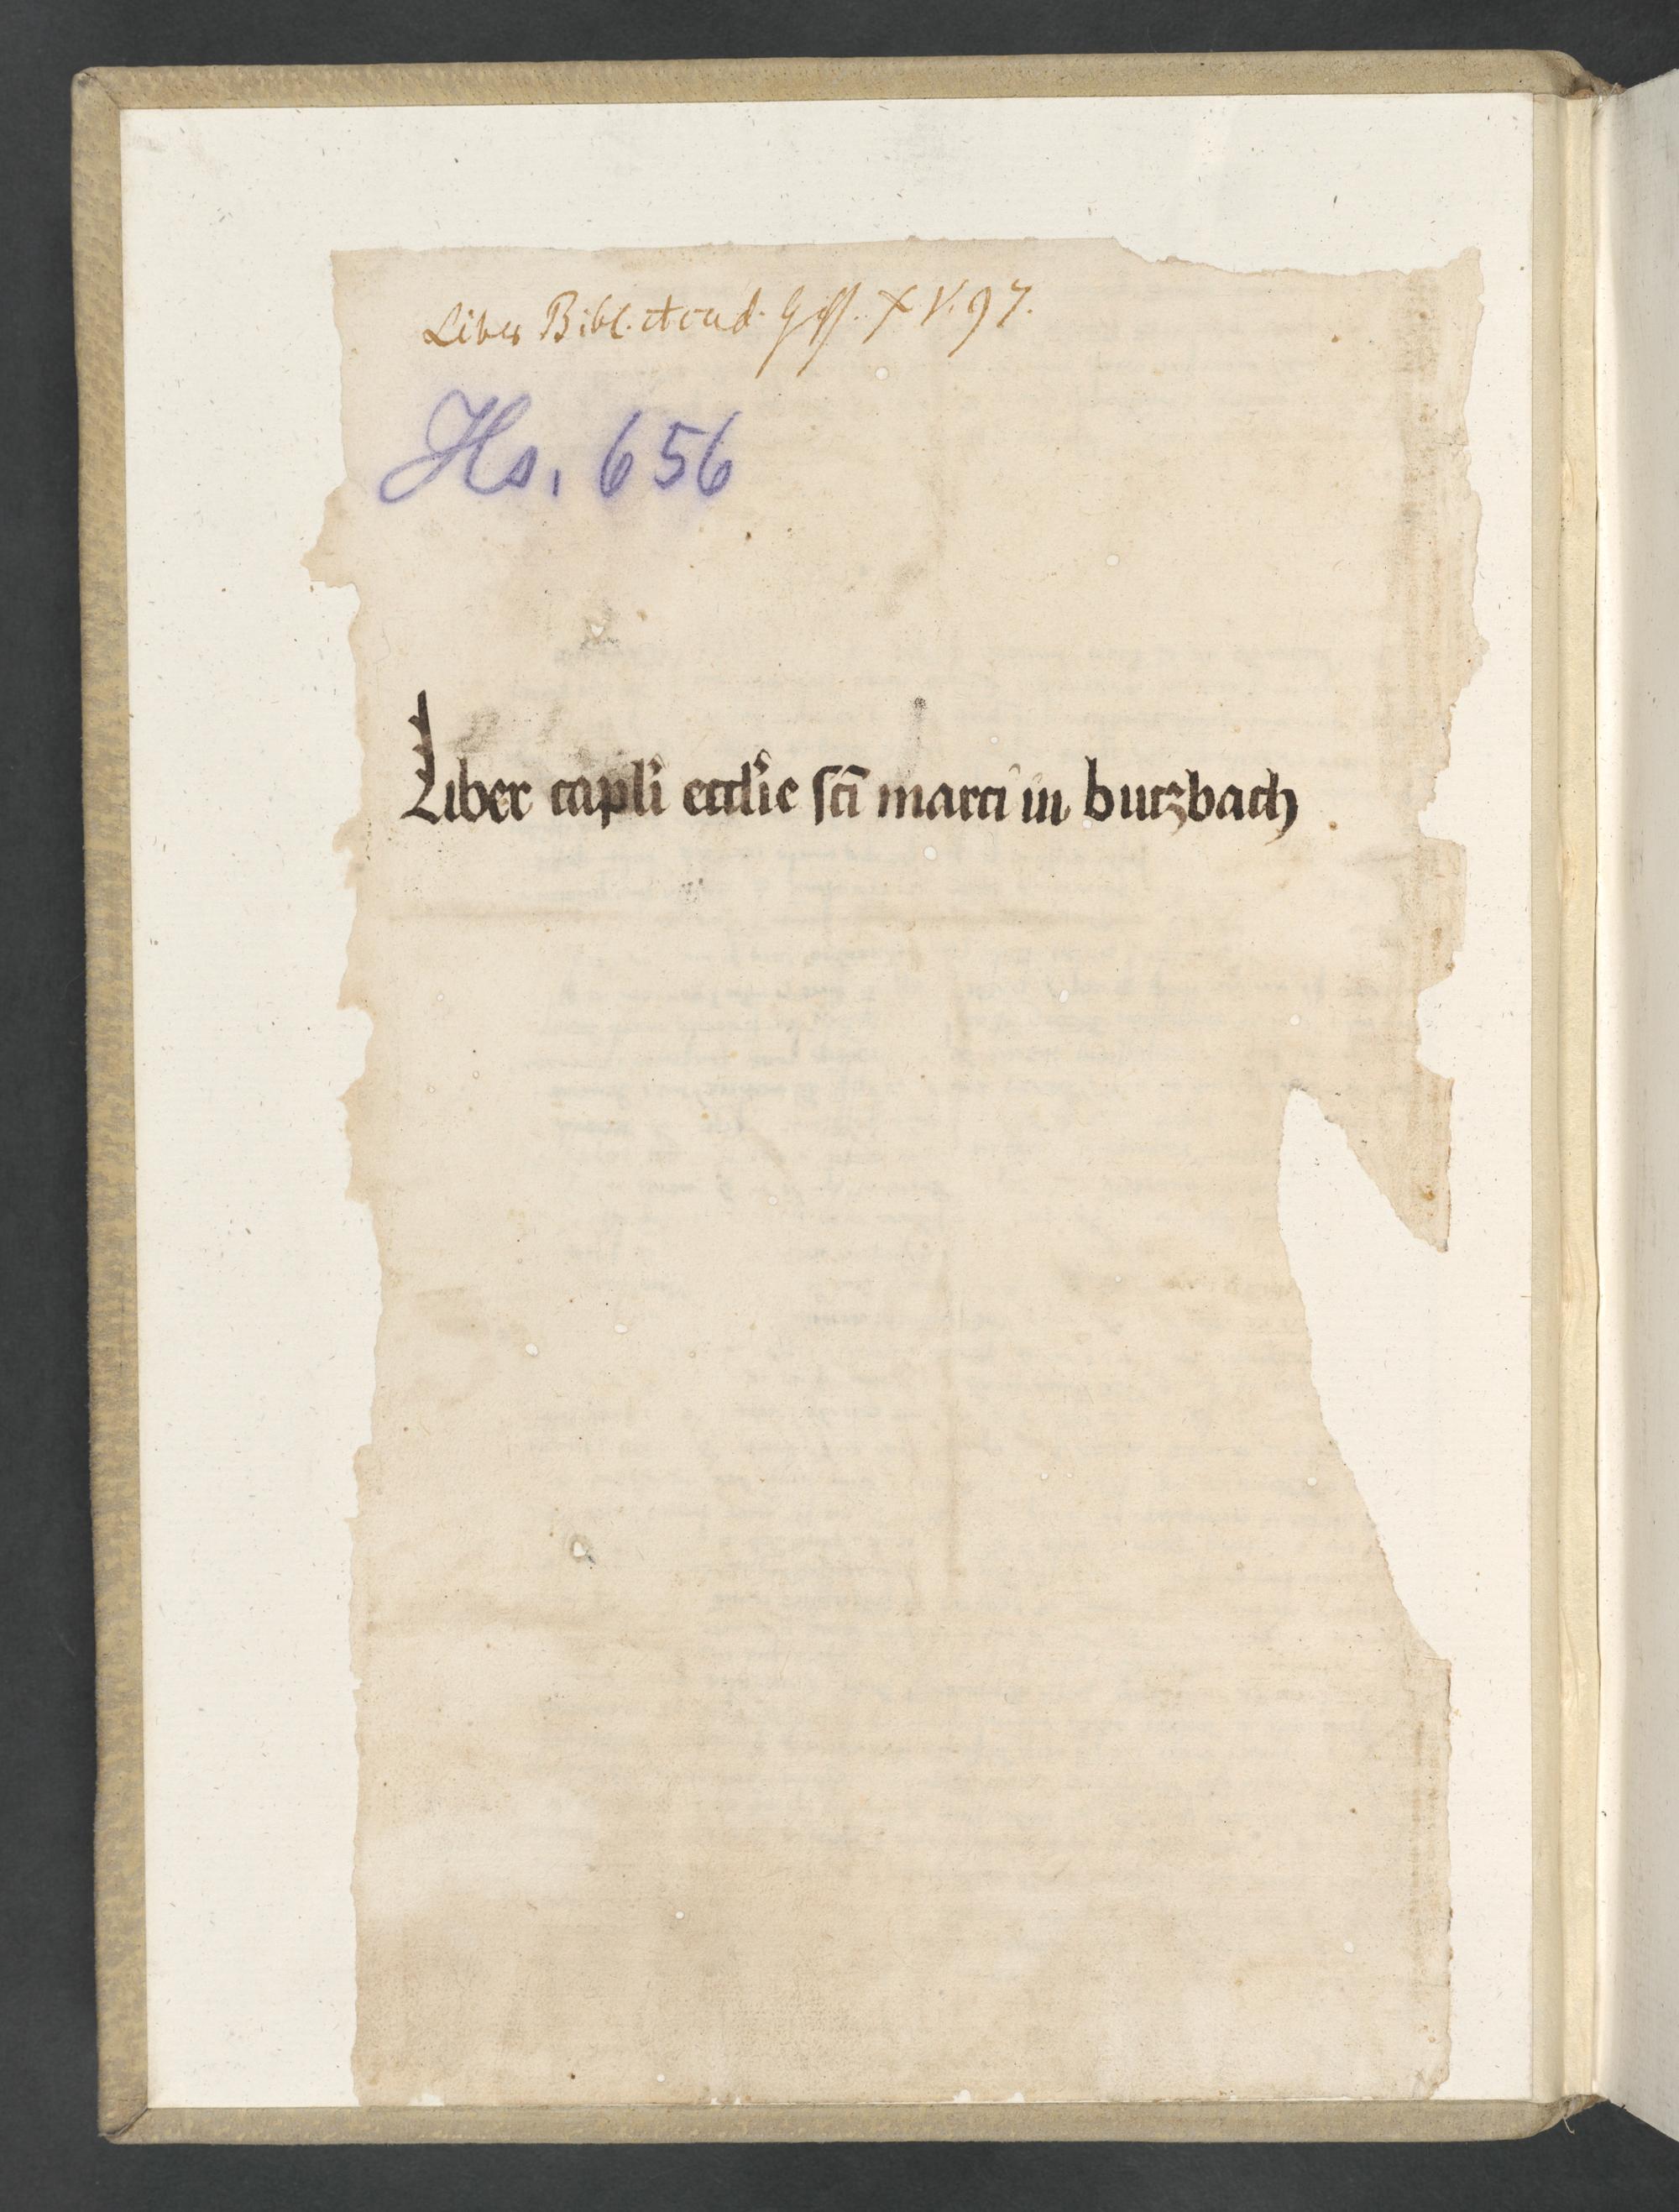 Liber Bibl. Acad. Giss. XV. 97.
Hs. 656
Liber capli eccl'ie sci marci in butzbach